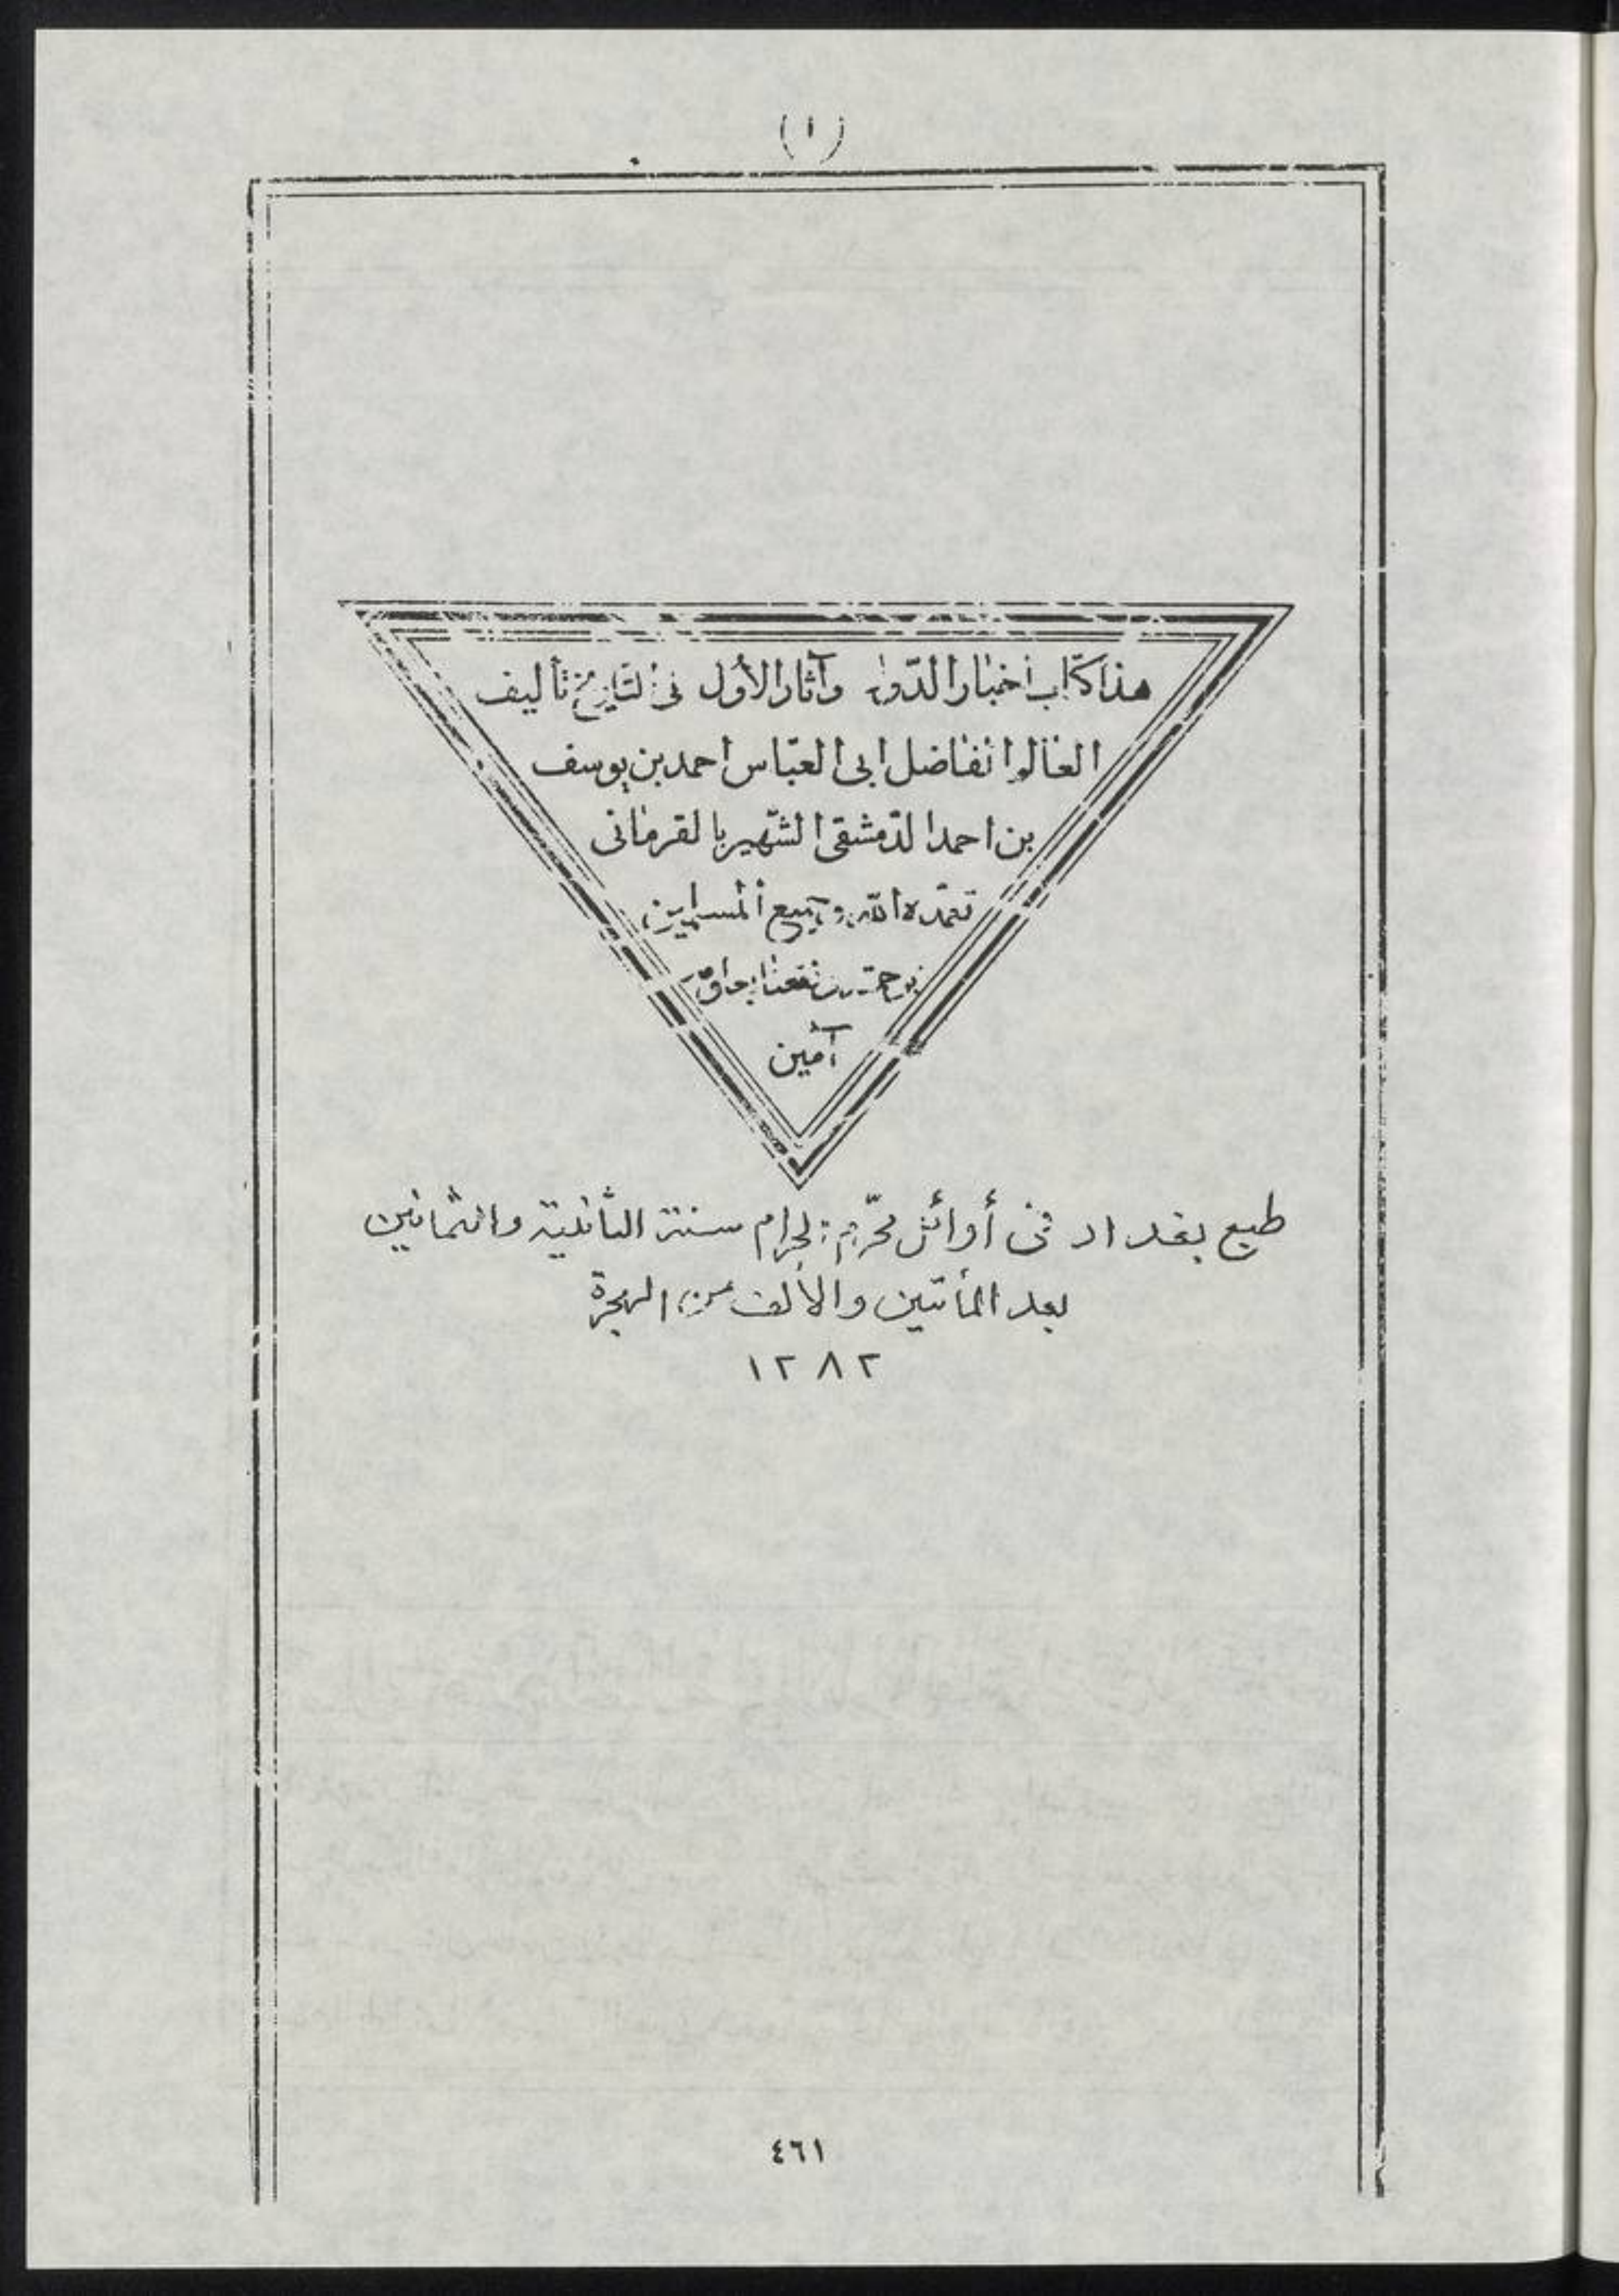 (١)
هذا كتاب أخبار الدّول وآثار الأول فى التاريخ تأليف
العالم الفاضل ابى العبّاس احمد بن يوسف
بن احمد الدّمشقى الشّهير بالقرمانى
تغمّده الله وجميع المسلمين
برحمته نفعنا
آمين
طبع بغداد فى أوائل محرّم الحرام سنة الثانية والثمانين
بعد المأتين والألف من الهجرة
١٢٨٢
٤٦١